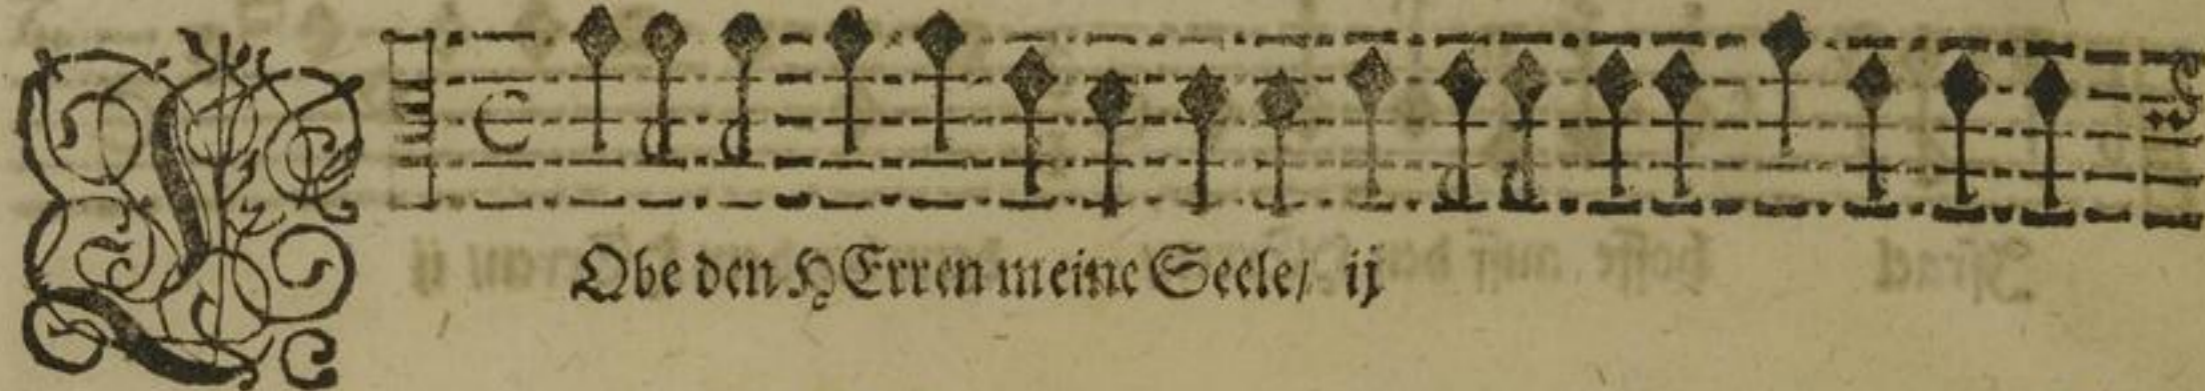 LObe den HErren meine Seele/ ij